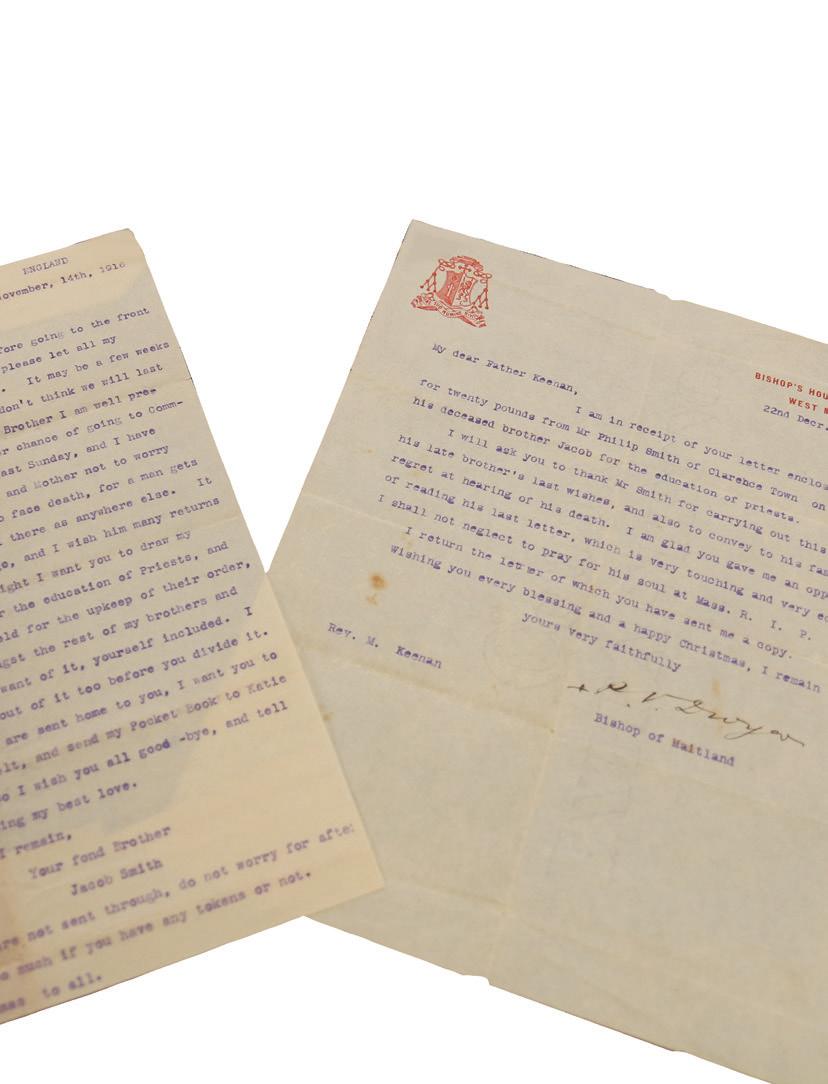 ENGLAND
November, 14th, 1916
going to the front
please let all my
It may be a few weeks
don't think we will last
Brother I am well pre=
chance of going to Comm-
last Sunday, and I have
and Mother not to worry
face death, for a man gets
there as anywhere else. It
and I wish him many returns
I want you to draw my
the education of Priests, and
for the upkeep of their order,
the rest of my brothers and
want of it, yourself included. I
out of it too before you divide it.
are sent home to you, I want you to
and send my Pocket Book to Katie
I wish you all good -bye, and tell
my best love.
I remain,
Your fond Brother
Jacob Smith
not sent through, do not worry for
much if you have any tokens or not.
to all.
BISHOP'S
WEST
22nd Decr.
My dear Father Keenan,
I am in receipt of your letter
for twenty pounds from Mr Philip Smith of Clarence Town on
his deceased brother Jacob for the education of priests.
I will ask you to thank Mr Smith for carrying out this
his late brother's last wishes, and also to convey to his
regret at hearing of his death. I am glad you gave me an
of reading his last letter, which is very touching and very
I shall not neglect to pray for his soul at Mass. R. I. P.
I return the letter of which you have sent me a copy.
Wishing you every blessing and a happy Christmas, I remain
yours very faithfully
Rev. M. Keenan
+ P. V. Dwyer
Bishop of Maitland